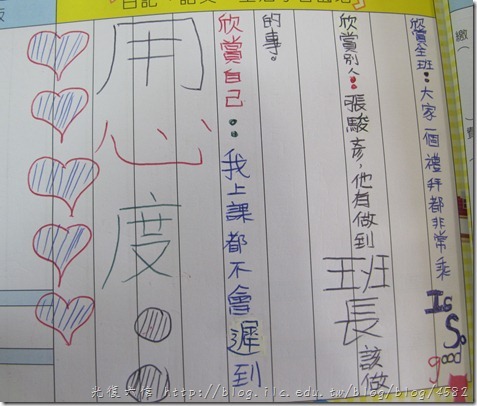 欣賞全班：大家一個禮拜都非常乖
Is
So
good
欣賞別人：張駿彥，他有做到班長該做
的事。
欣賞自己：我上課都不會遲到
用心度：
繳
http://blog.ilc.edu.tw/blog/blog/4582